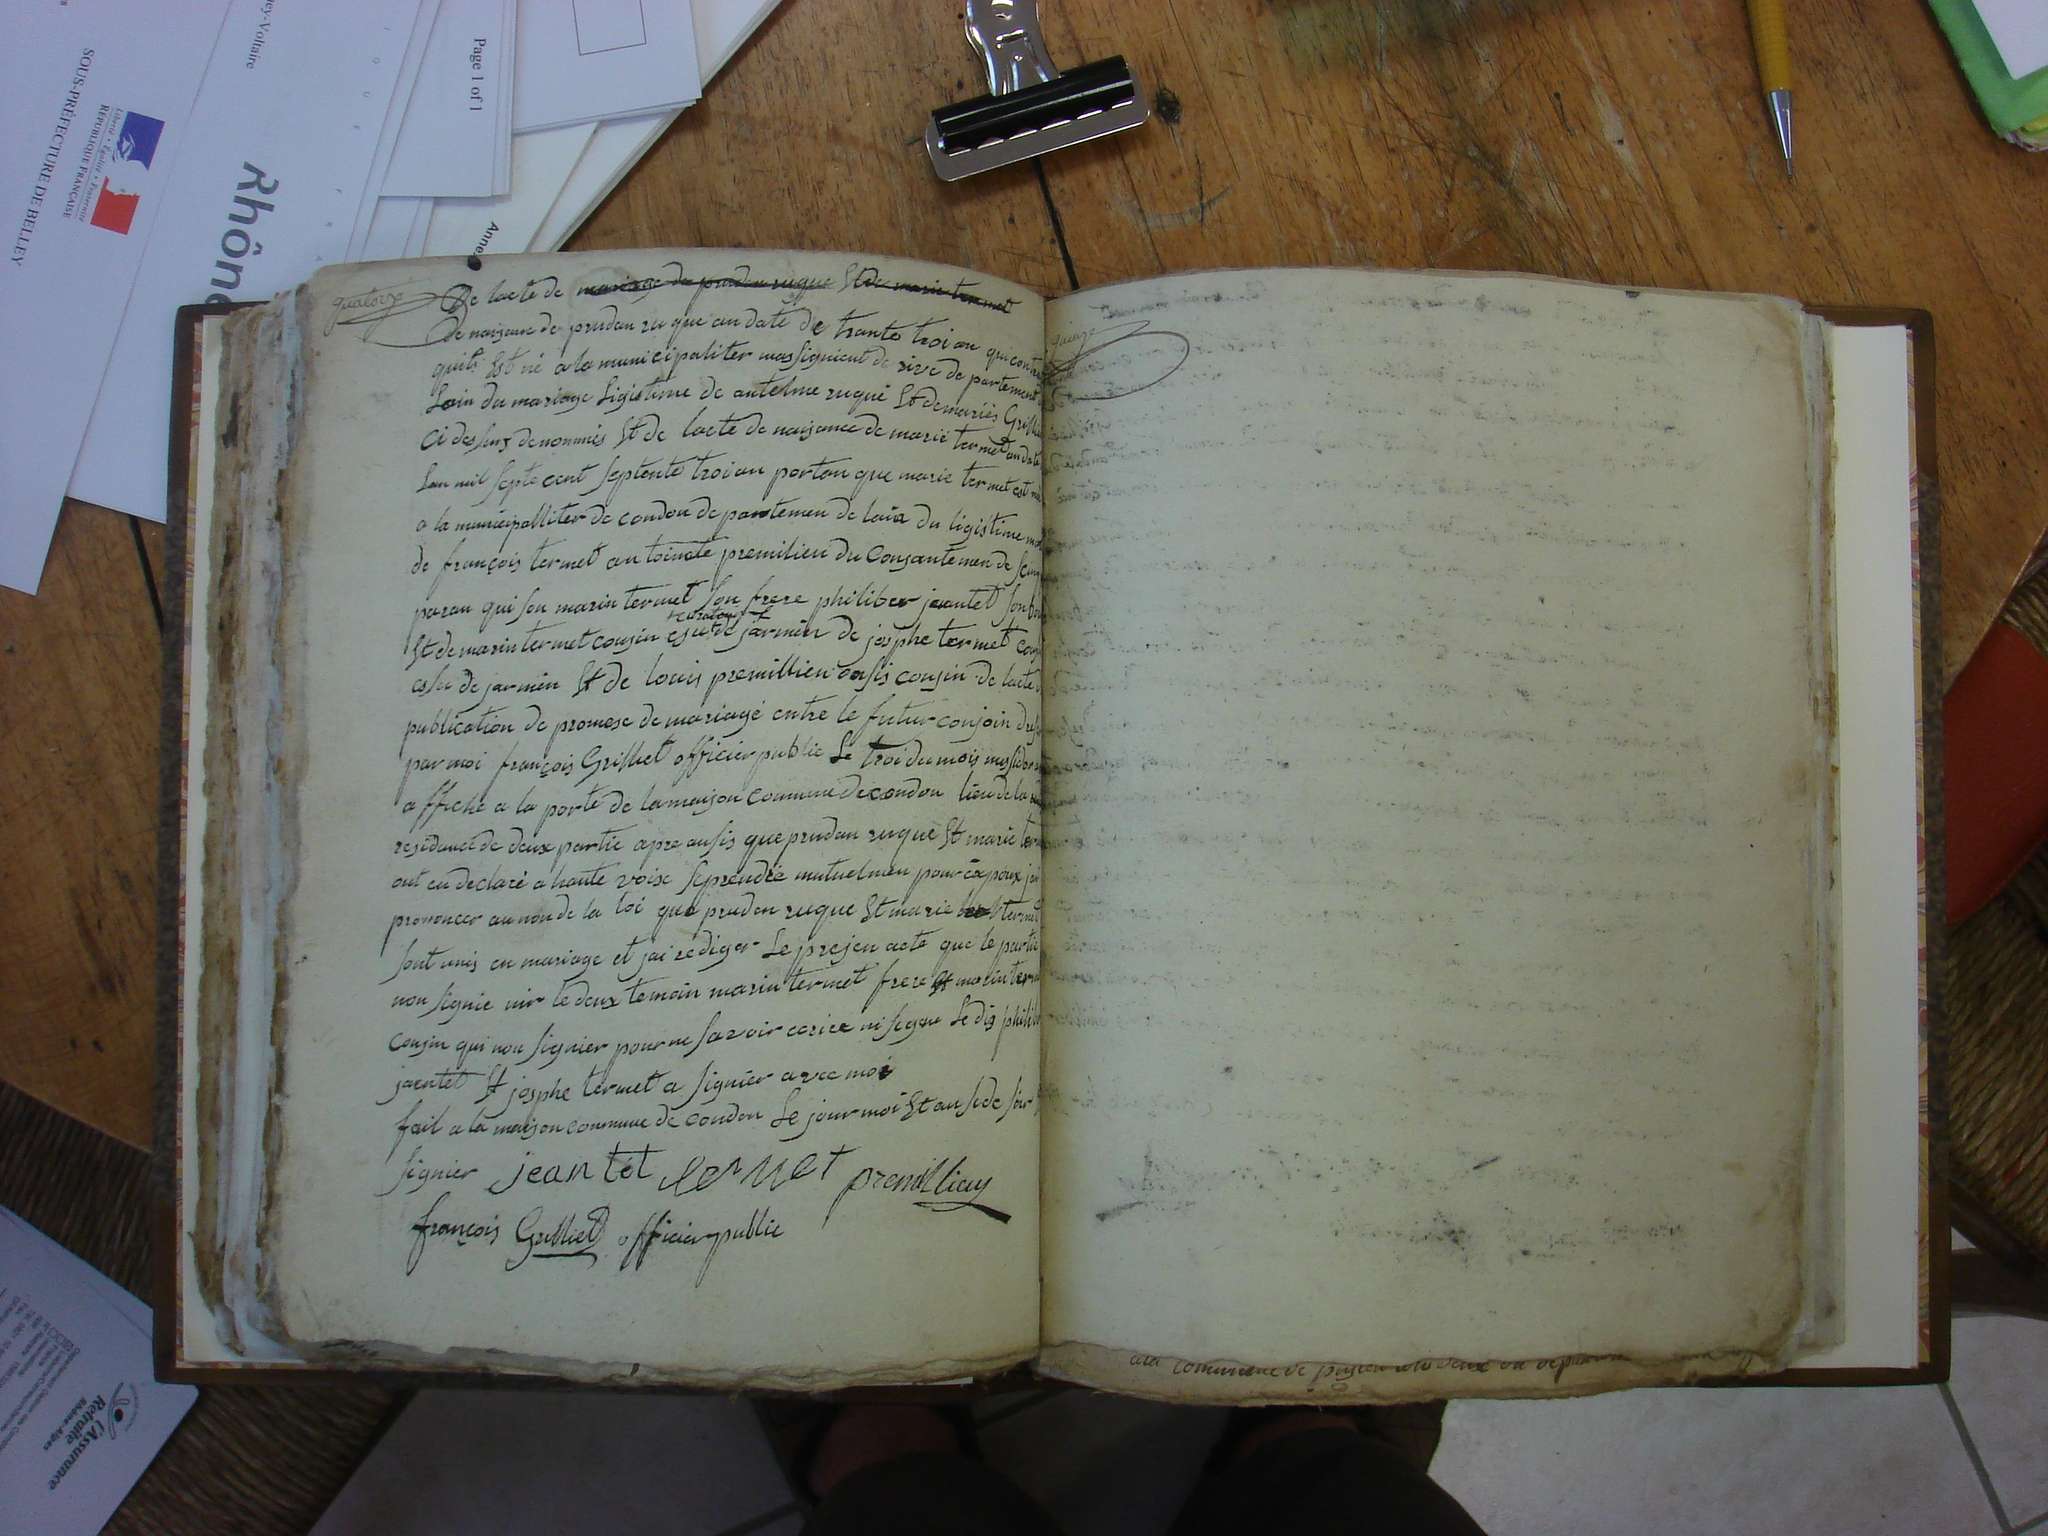 ey-Voltaire
Page 1 of 1
SOUS-PRÉFECTURE DE BELLEY
Liberté • Égalité • Fraternité
RÉPUBLIQUE FRANÇAISE
Rhôn
Anne
quatorze
De lacte de mariage de prudan ruque Et de marie termet
de naisance de prudan ruque an date de trante troi an qui
quits Est né a la municipaliter massignieut de rive de partement
Lain du mariage Ligistime de antelme ruque Et de mariés Grillie
Ci desus denommés Et de lacte de naisance de marie termet an date
Lan mil septe cent septente troi an portan que marie termet est né
a la municipalliter de condon de partemen de lain du ligistime
de françois termet antoinete premilieu du Consantemen de
paran qui son marin termet son frere philiber jeantet son
curateur
Et de marin termet cousin esu de jarmin de josphe termet
esu de jarmin Et de louis premillieu cousin de lacte
publication de promese de mariage entre le futur conjoin
par moi françois Grilliet officier public Le troi du mois
affiche a la porte de la maison commune de condon lieu de la
residance de deux partie apre ausis que prudan ruque Et marie
ont eu declaré a haute voise seprendre mutuelmen pour époux
prononcer au non de la loi que prudan ruque Et marie termet
sont unis en mariage et jai rediger Le presen acte que le partie
non signie nir le deux temoin marin termet frere Et marin
cousin qui non signier pour ne savoir ecrire ni signe Le dis
jeantet Et josphe termet a signier avec moi
fait a la maison commune de condon Le jour moi Et an
signier jeantet termet premillieu
françois Grilliet officier public
quinze
commune de
l'Assurance
Retraite
Rhône-Alpes